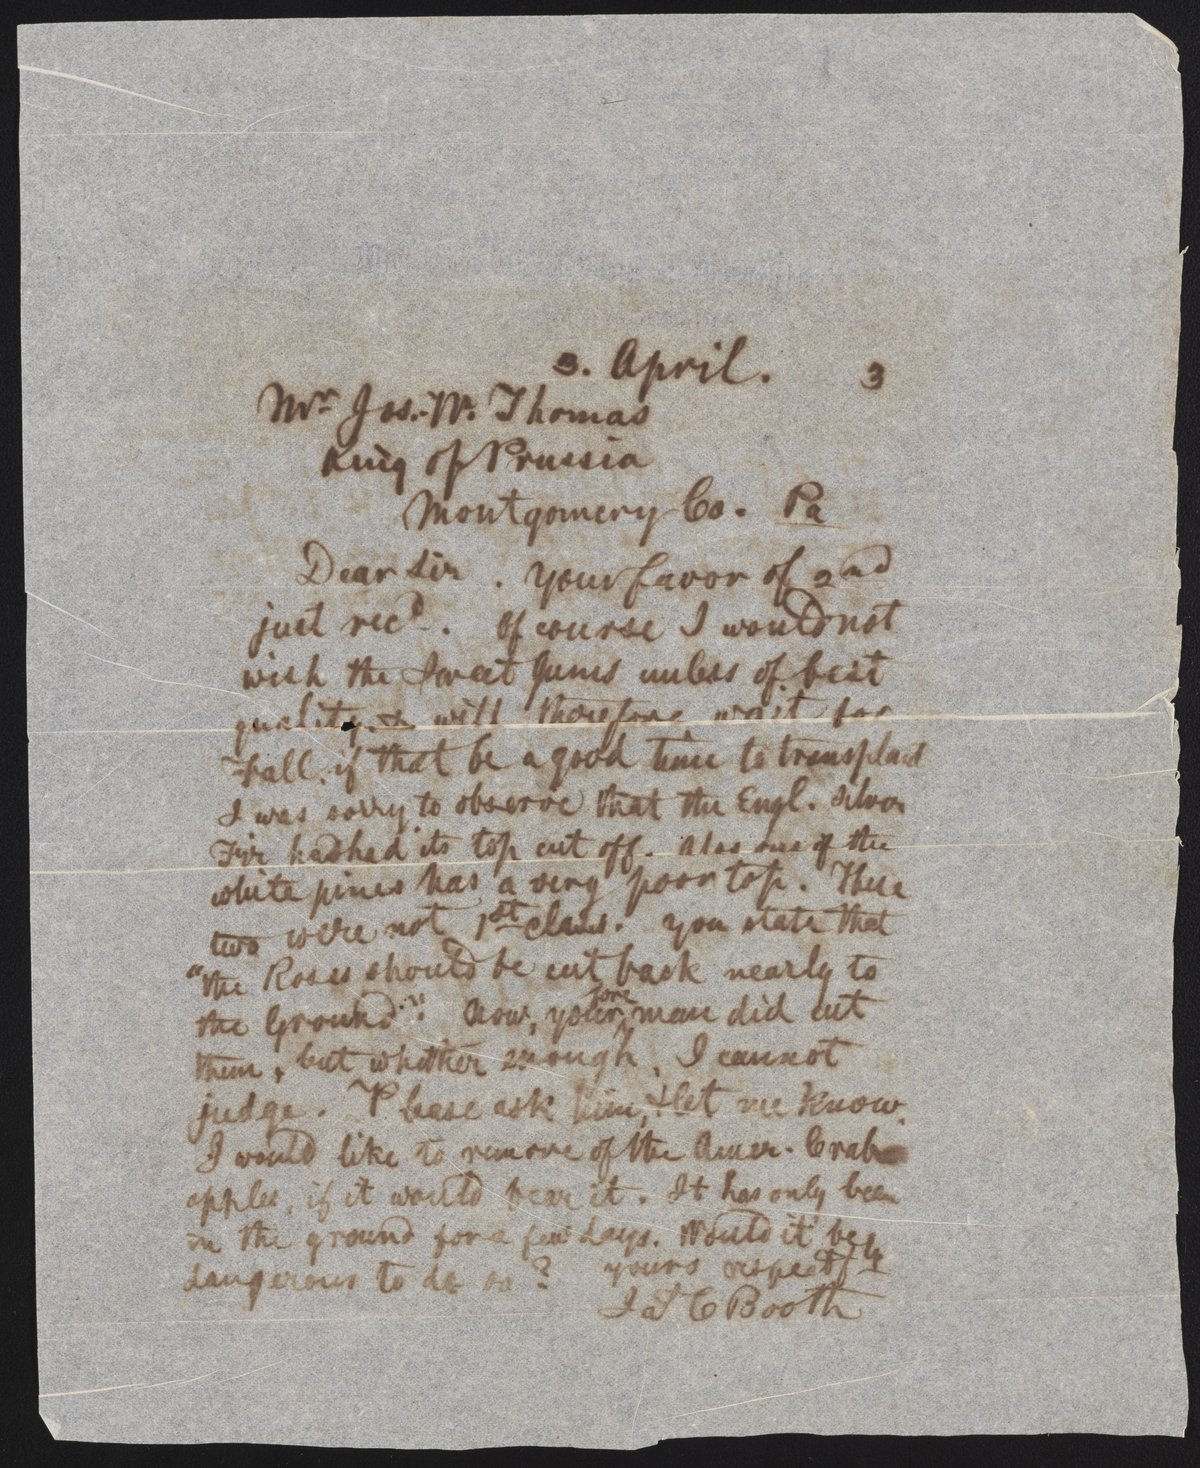 3. April. 3
Mr Jos. W. Thomas
King of Prussia
Montgomery Co. Pa
Dear Sir. Your favor of 2nd
just recd. Of course I would not
wish the Sweet Gums unless of best
quality. & will therefore wait for
Fall, if that be a good time to transplant
I was sorry to observe that the Engl. Silver
Fir had had its top cut off. Also one of the
white pines has a very poor top. These
two were not 1st class. You state that
"the Roses should be cut back nearly to
the Ground". Now, your fore man did cut
them, but whether enough, I cannot
judge. Please ask him, & let me know.
I would like to remove of the Amer. Crab
apples, if it would bear it. It has only been
in the ground for a few days. Would it be
dangerous to do so? Yours respectfly
Jas C Booth